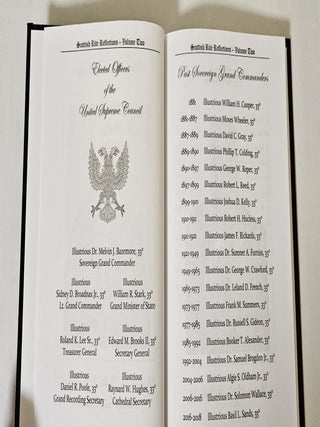 Scottish Rite Reflections - Volume Two
Elected Officers
of the
United Supreme Council
Illustrious Dr. Melvin J. Bazemore, 33°
Sovereign Grand Commander
Illustrious
Sidney D. Broadnax Jr., 33°
Lt. Grand Commander
Illustrious
William R. Stark, 33°
Grand Minister of State
Illustrious
Roland K. Lee Sr., 33°
Treasurer General
Illustrious
Edward M. Brooks II, 33°
Secretary General
Illustrious
Daniel R. Poole, 33°
Grand Recording Secretary
Illustrious
Raynard W. Hughes, 33°
Cathedral Secretary
Scottish Rite Reflections - Volume Two
Past Sovereign Grand Commanders
1881 Illustrious William H. Cooper, 33°
1881-1887 Illustrious Moses Wheeler, 33°
1887-1889 Illustrious David C. Gray, 33°
1889-1890 Illustrious Phillip T. Colding, 33°
1890-1897 Illustrious George W. Roper, 33°
1897-1899 Illustrious Robert L. Reed, 33°
1899-1910 Illustrious Joshua D. Kelly, 33°
1910-1921 Illustrious Robert H. Hucless, 33°
1921 Illustrious James F. Rickards, 33°
1921-1949 Illustrious Dr. Sumner A. Furniss, 33°
1949-1965 Illustrious Dr. George W. Crawford, 33°
1965-1973 Illustrious Dr. Leland D. French, 33°
1973-1977 Illustrious Frank M. Summers, 33°
1977-1985 Illustrious Dr. Russell S. Gideon, 33°
1985-1992 Illustrious Booker T. Alexander, 33°
1992-2004 Illustrious Dr. Samuel Brogdon Jr., 33°
2004-2006 Illustrious Algie S. Oldham Jr., 33°
2006-2016 Illustrious Dr. Solomon Wallace, 33°
2016-2018 Illustrious Basil L. Sands, 33°